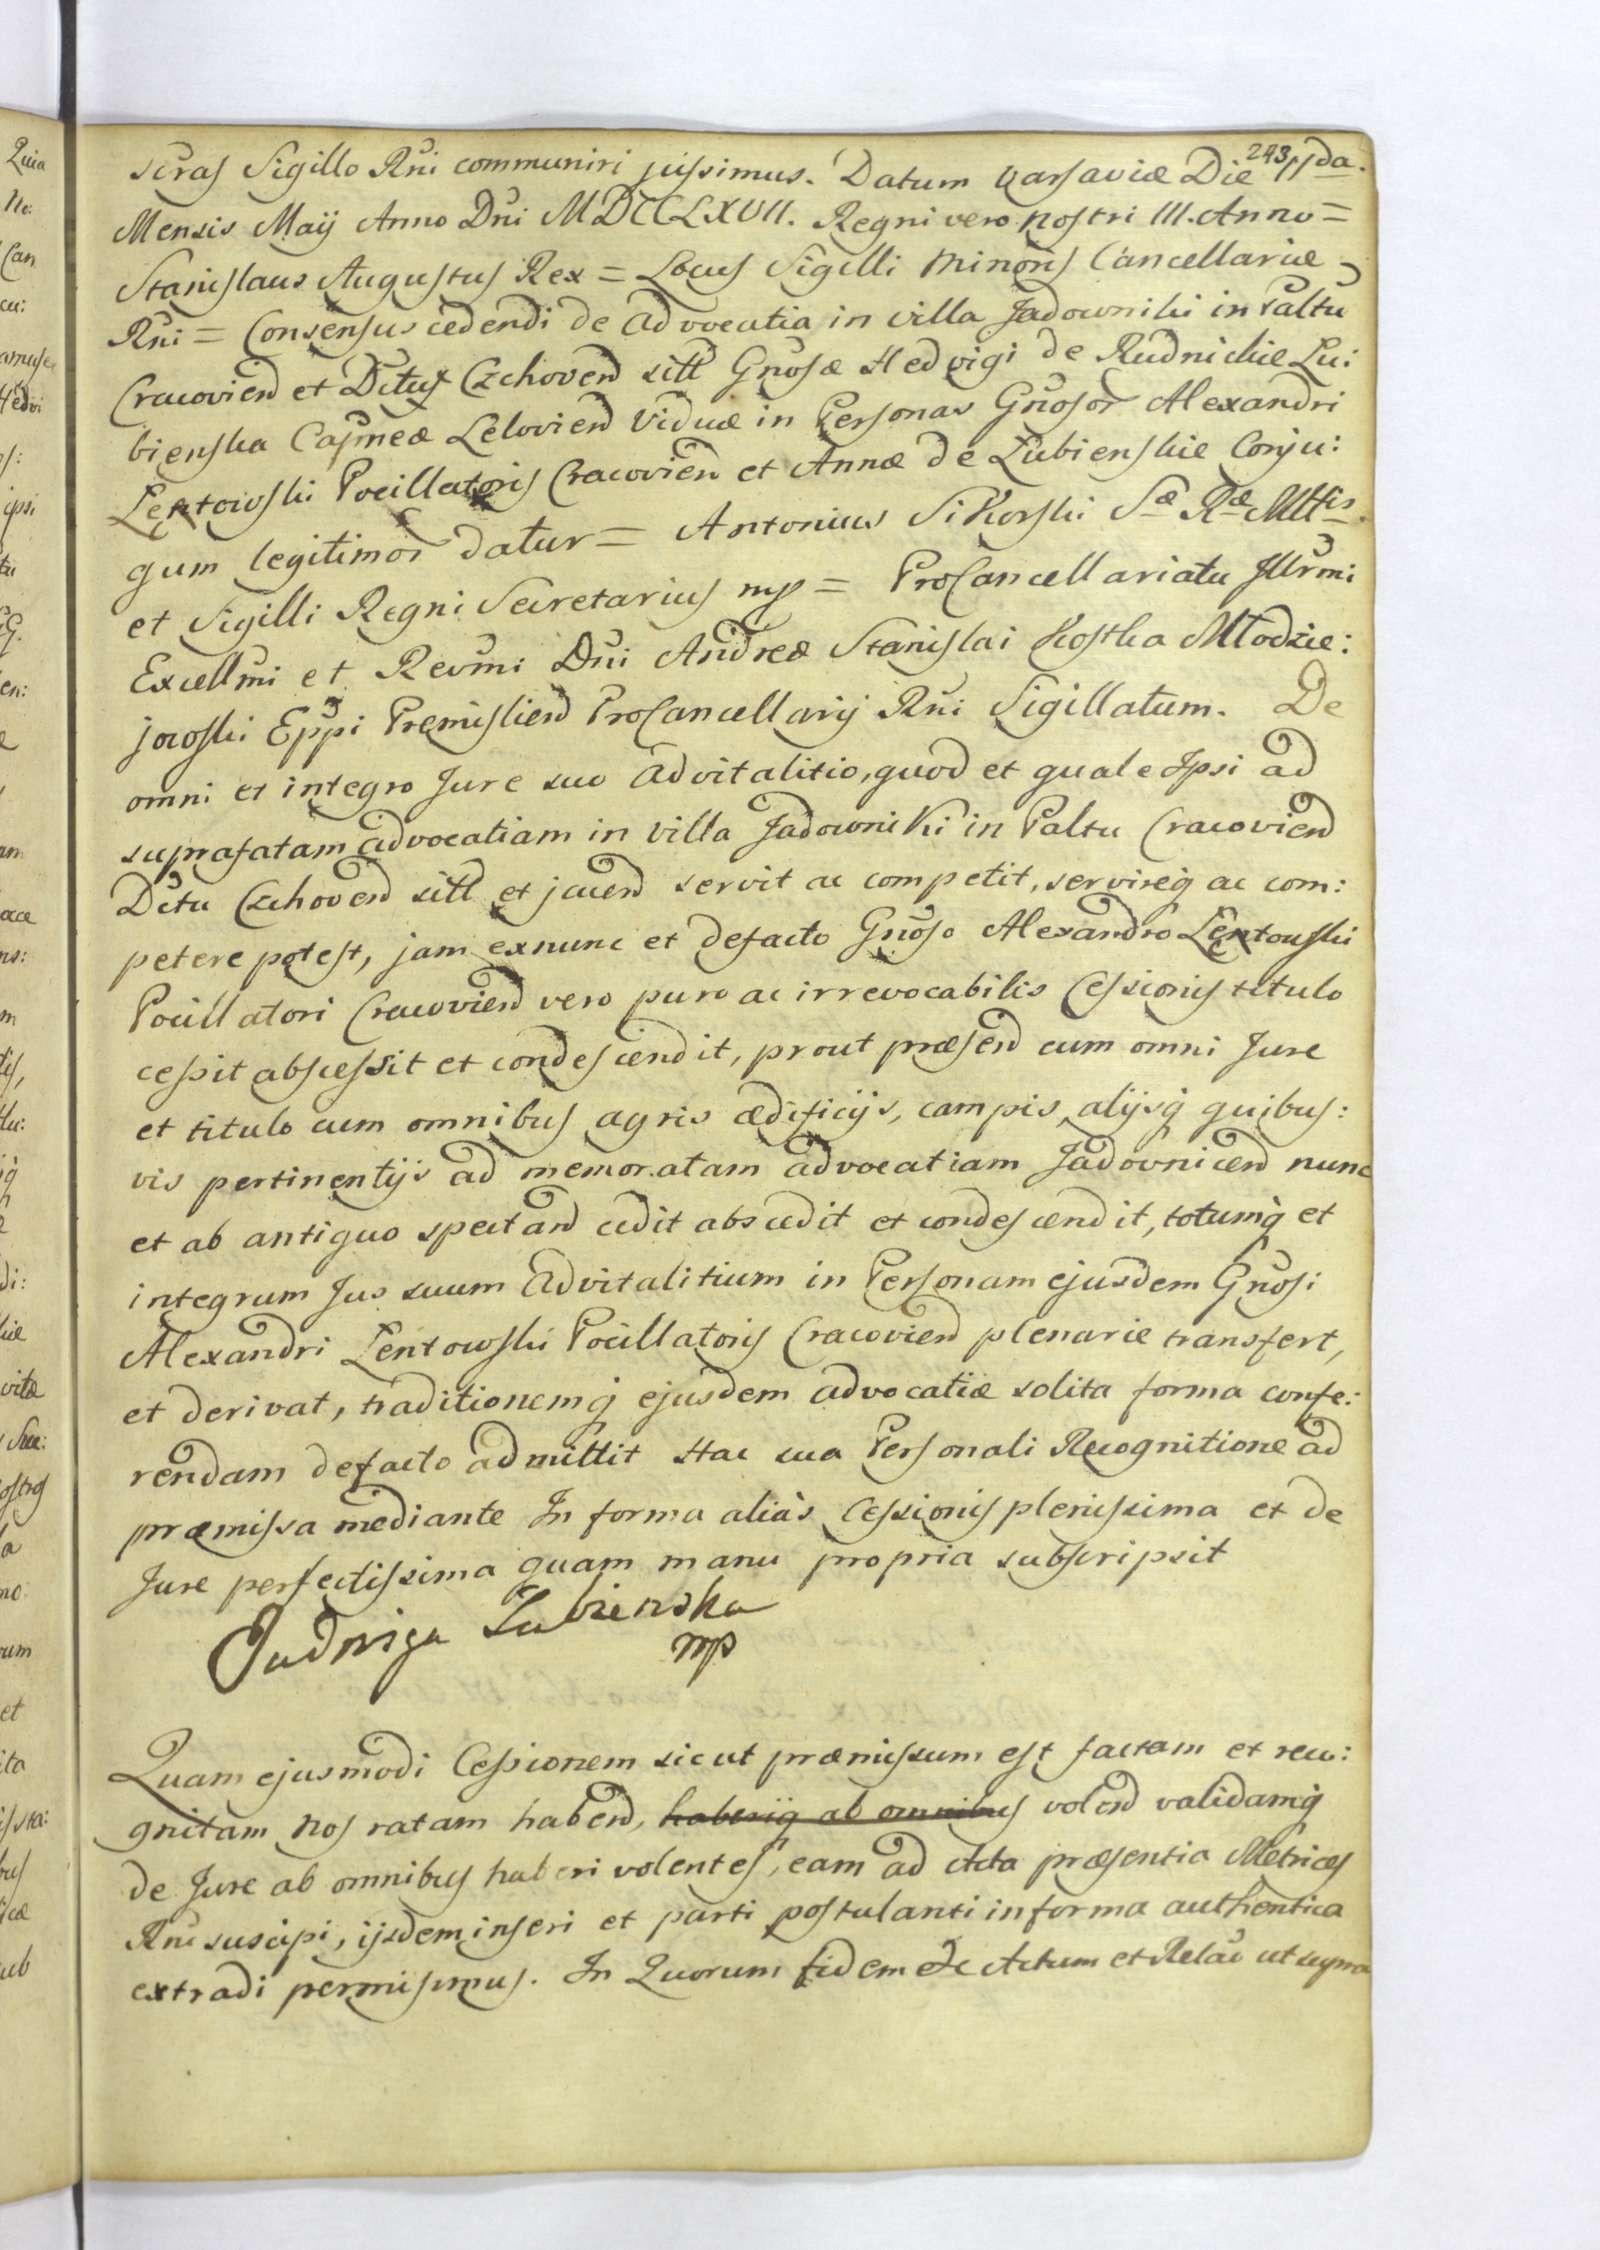 243
scras Sigillo Rni communiri jussimus. Datum Varsaviæ Die 11da.
Mensis Maij Anno Dni MDCCLXVII. Regni vero nostri III. Anno =
Stanislaus Augustus Rex = Locus Sigilli Minoris Cancellariæ
Rni = Consensus cedendi de advocatia in villa Jadowniki in Paltu
Cracovien et Dctus Czchoven sitt Gnosæ Hedvigi de Rudnickie Lu:
bienska Capneæ Lelovien Viduæ in Personas Gnosor Alexandri
Lentowski Pocillatoris Cracovien et Annæ de Lubienskie Conju:
gum legitimor datur = Antonius Sikorski Sæ Ræ Mttis.
et Sigilli Regni Secretarius mp = ProCancellariatu Jllrmi
Excellmi et Revmi Dni Andreæ Stanislai Kostka Młodzie:
jowski Eppi Premislien ProCancellarij Rni Sigillatum. De
omni et integro Jure suo advitalitio, quod et quale Ipsi ad
suprafatam advocatiam in villa Jadowniki in Paltu Cracovien
Dctu Czchoven sitt et jacen servit ac competit, servireq ac com:
petere potest, jam exnunc et defacto Gnoso Alexandro Lentowski
Pocillatori Cracovien vero puro ac irrevocabilis Cessionis titulo
cessit abscessit et condescendit, prout præsen cum omni Jure
et titulo cum omnibus agris ædificijs, campis, alijsq quibus:
vis pertinentijs ad memoratam advocatiam Jadownicen nunc
et ab antiquo spectan cedit abscedit et condescendit, totumq et
integrum Jus suum advitalitium in Personam ejusdem Gnosi
Alexandri Lentowski Pocillatoris Cracovien plenarie transfert,
et derivat, traditionemq ejusdem advocatiæ solita forma confe:
rendam defacto admittit Hac sua Personali Recognitione ad
præmissa mediante In forma aliàs Cessionis plenissima et de
Jure perfectissima quam manu propria subscripsit
Jadwiga Lubienska
mp
Quam ejusmodi Cessionem sic ut præmissum est factam et reco:
gnitam Nos ratam haben, haberiq ab omnibus volen validamq
de Jure ab omnibus haberi volentes, eam ad Acta præsentia Metrices
Rni suscipi, ijsdem inseri et parti postulanti in forma authentica
extradi permisimus. In Quorum fidem &c Actum et Relac ut supra